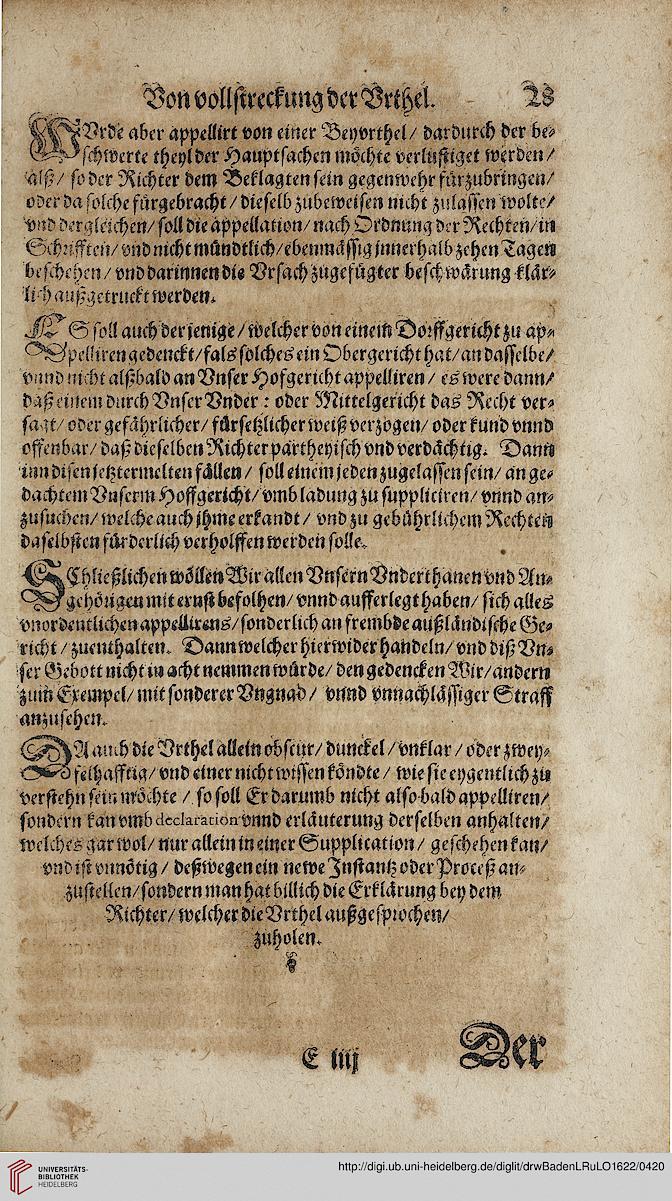 Von vollstreckung der Vrthel. 23
WVrde aber appellirt von einer Beyvrthel/ dardurch der be-
schwerte theyl der Hauptsachen möchte verlustiget werden/
alß/ so der Richter dem Beklagten sein gegenwehr fürzubringen/
oder da solche fürgebracht/ dieselb zubeweisen nicht zulassen wolte/
vnd dergleichen/ soll die appellation/ nach Ordnung der Rechten/ in
Schrifften/ vnd nicht mündtlich/ ebenmässig innerhalb zehen Tagen
beschehen/ vnd darinnen die Vrsach zugefügter beschwärung klär-
lich außgetruckt werden.
ES soll auch der jenige/ welcher von einem Dorffgericht zu ap-
pelliren gedenckt/ fals solches ein Obergericht hat/ an dasselbe/
vnnd nicht alßbald an Vnser Hofgericht appelliren/ es were dann/
daß einem durch Vnser Vnder: oder Mittelgericht das Recht ver-
sagt/ oder gefährlicher/ fürsetzlicher weiß verzogen/ oder kund vnnd
offenbar/ daß dieselben Richter partheyisch vnd verdächtig. Dann
inn disen jetztermelten fällen/ soll einem jeden zugelassen sein/ an ge-
dachtem Vnserm Hoffgericht/ vmb ladung zu suppliciren/ vnnd an-
zusuchen/ welche auch jhme erkandt/ vnd zu gebührlichem Rechten
daselbsten fürderlich verholffen werden solle.
SChließlichen wöllen Wir allen Vnsern Vnderthanen vnd An-
gehörigen mit ernst befolhen/ vnnd aufferlegt haben/ sich alles
vnordentlichen appellirens/ sonderlich an frembde außländische Ge-
richt/ zuenthalten. Dann welcher hierwider handeln/ vnd diß Vn-
ser Gebott nicht in acht nemmen würde/ den gedencken Wir/ andern
zum Exempel/ mit sonderer Vngnad/ vnnd vnnachlässiger Straff
anzusehen.
DA auch die Vrthel allein obscur/ dunckel/ vnklar/ oder zwey-
felhafftig/ vnd einer nicht wissen köndte/ wie sie eygentlich zu
verstehn sein möchte/ so soll Er darumb nicht also bald appelliren/
sondern kan vmb declaration vnnd erläuterung derselben anhalten/
welches gar wol/ nur allein in einer Supplication/ geschehen kan/
vnd ist vnnötig/ deßwegen ein newe Instantz oder Proceß an-
zustellen/ sondern man hat billich die Erklärung bey dem
Richter/ welcher die Vrthel außgesprochen/
zuholen.
E iiij Der
UNIVERSITÄTS-
BIBLIOTHEK
HEIDELBERG
http://digi.ub.uni-heidelberg.de/diglit/drwBadenLRuLO1622/0420